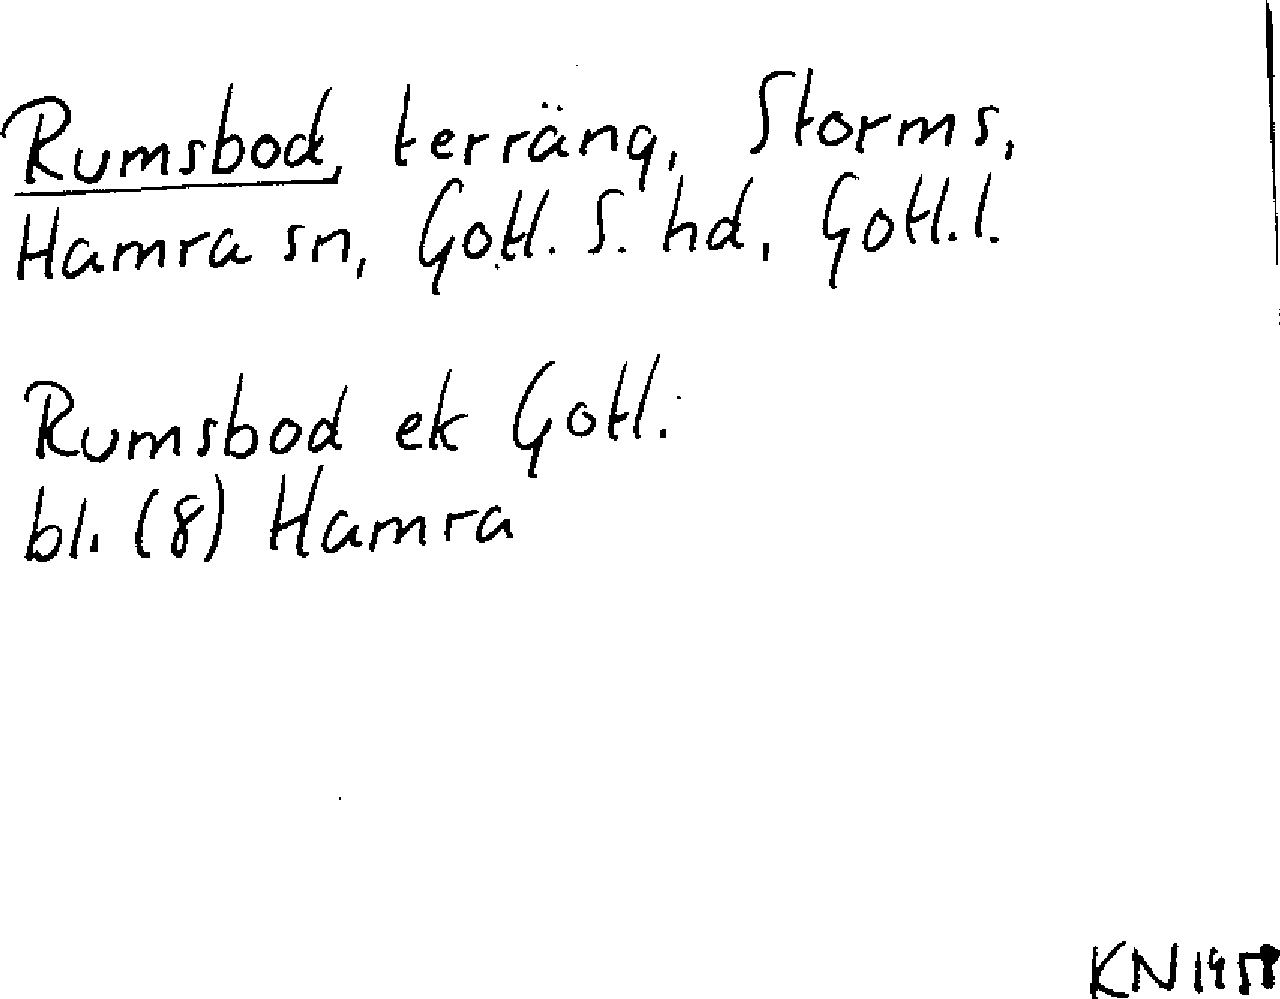 Rumsbod, terräng, Storms,
Hamra sn, Gotl. S. hd, Gotl. l.
Rumsbod ek Gotl.
bl. (8) Hamra
KN